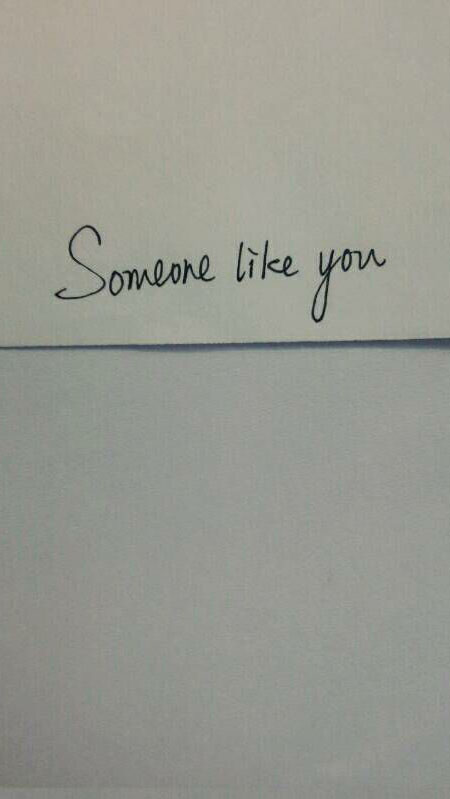 Someone like you